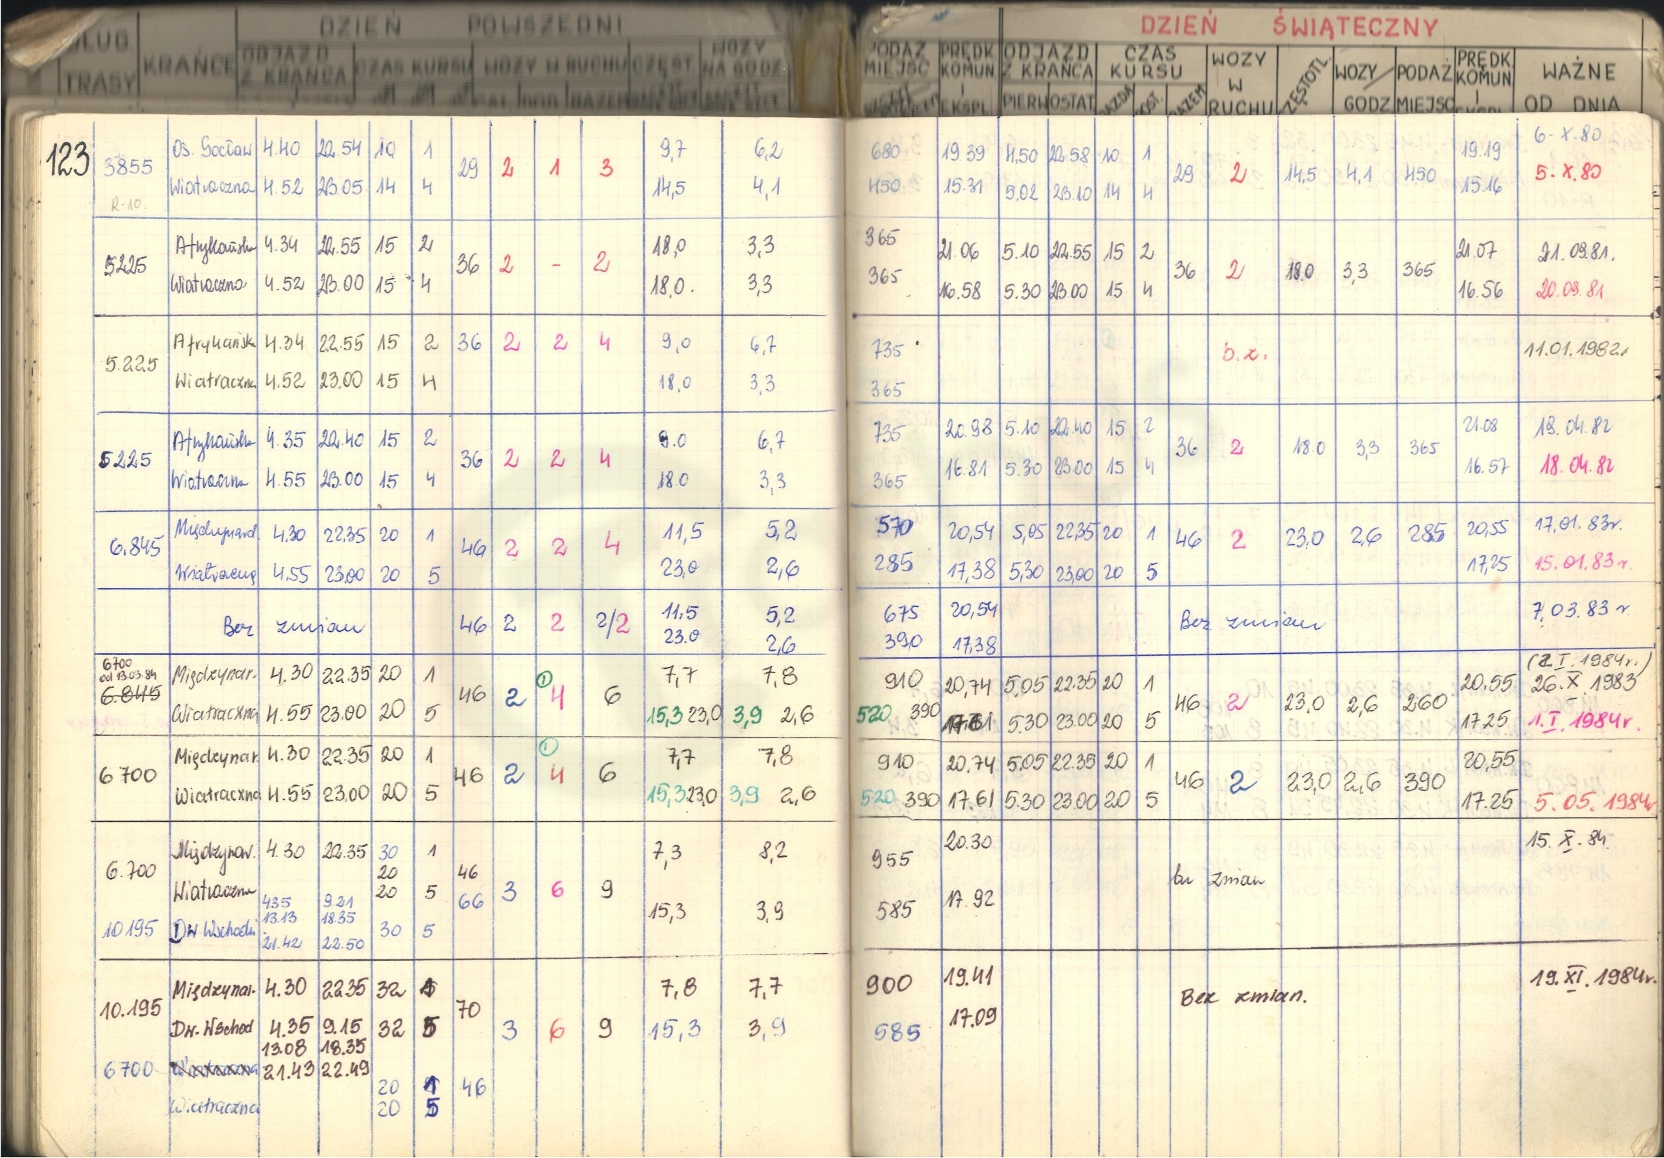 DZIEŃ POWSZEDNI
DŁUG TRASY KRAŃCE ODJAZD Z KRAŃCA CZAS KURSU WOZY W RUCHU CZĘST WOZY NA GODZ
DZIEŃ ŚWIĄTECZNY
PODAŻ MIEJSC PRĘDK KOMUN I EKSPL. ODJAZD Z KRAŃCA CZAS KURSU WOZY W RUCHU CZĘSTOTL. WOZY/GODZ PODAŻ MIEJSC PRĘDK. KOMUN I EKSPL WAŻNE OD DNIA
PIERW OSTAT. JAZDA POST RAZEM
123
3855 Os. Gocław 4.40 22.54 10 1 29 2 1 3 9,7 6,2 680 19.39 4.50 22.58 10 1 29 2 14,5 4,1 450 19.19 6-X.80
Wiatraczna 4.52 23.05 14 4 14,5 4,1 450 15.31 5.02 23.10 14 4 15.16 5-X.80
R-10.
5225 Afrykańska 4.34 22.55 15 2 36 2 - 2 18,0 3,3 365 21.06 5.10 22.55 15 2 36 2 18.0 3,3 365 21.07 21.09.81.
Wiatraczna 4.52 23.00 15 4 18,0. 3,3 365 16.58 5.30 23.00 15 4 16.56 20.09.81
5.225 Afrykańsk 4.34 22.55 15 2 36 2 2 4 9,0 6,7 735 b.z. 11.01.1982r
Wiatraczna 4.52 23.00 15 4 18,0 3,3 365
5225 Afrykańska 4.35 22.40 15 2 36 2 2 4 9.0 6,7 735 20.98 5.10 22.40 15 2 36 2 18.0 3,3 365 21.08 19.04.82
Wiatraczna 4.55 23.00 15 4 18.0 3,3 365 16.81 5.30 23.00 15 4 16.57 18.04.82
6.845 Międzynarod. 4.30 22.35 20 1 46 2 2 4 11,5 5,2 570 20,54 5,05 22.35 20 1 46 2 23,0 2,6 285 20,55 17.01.83r.
Wiatraczna 4.55 23,00 20 5 23,0 2,6 285 17,38 5,30 23,00 20 5 17,25 15.01.83r.
Bez zmian 46 2 2 2/2 11,5 5,2 675 20,54 Bez zmian 7.03.83 r
23.0 2,6 390 17,38
6700 od 13.03.84 (2.I.1984r.)
6.845 Międzynar. 4.30 22.35 20 1 46 2 ① 4 6 7,7 7,8 910 20,74 5,05 22.35 20 1 46 2 23,0 2,6 260 20,55 26.X.1983
Wiatraczna 4.55 23.00 20 5 15,3 23,0 3,9 2,6 520 390 17.61 5.30 23.00 20 5 17.25 1.I.1984r.
6700 Międzynar. 4.30 22.35 20 1 46 2 ① 4 6 7,7 7,8 910 20.74 5.05 22.35 20 1 46 2 23,0 2,6 390 20,55
Wiatraczna 4.55 23.00 20 5 15,3 23,0 3,9 2,6 520 390 17.61 5.30 23.00 20 5 17.25 5.05.1984r
6.700 Międzynar. 4.30 22.35 30 1 46 7,3 8,2 955 20.30 15.X.84.
20
Wiatraczna 20 5 66 3 6 9 15,3 3,9 585 17.92 bez zmian
4.35 9.21
13.13 18.35
10195 Dw. Wschodni 21.42 22.50 30 5
10.195 Międzynar. 4.30 22.35 32 1 70 7,8 7,7 900 19.41 Bez zmian. 19.XI.1984r.
Dw. Wschod 4.35 9.15 32 5 3 6 9 15,3 3,9 585 17.09
13.08 18.35
6700 Wiatraczna 21.43 22.49
20 1 46
Wiatraczna 20 5